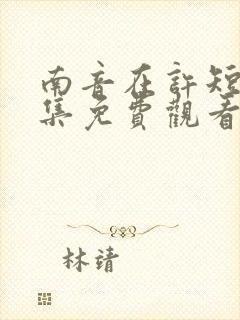 南音在許短
集免費觀看
林靖